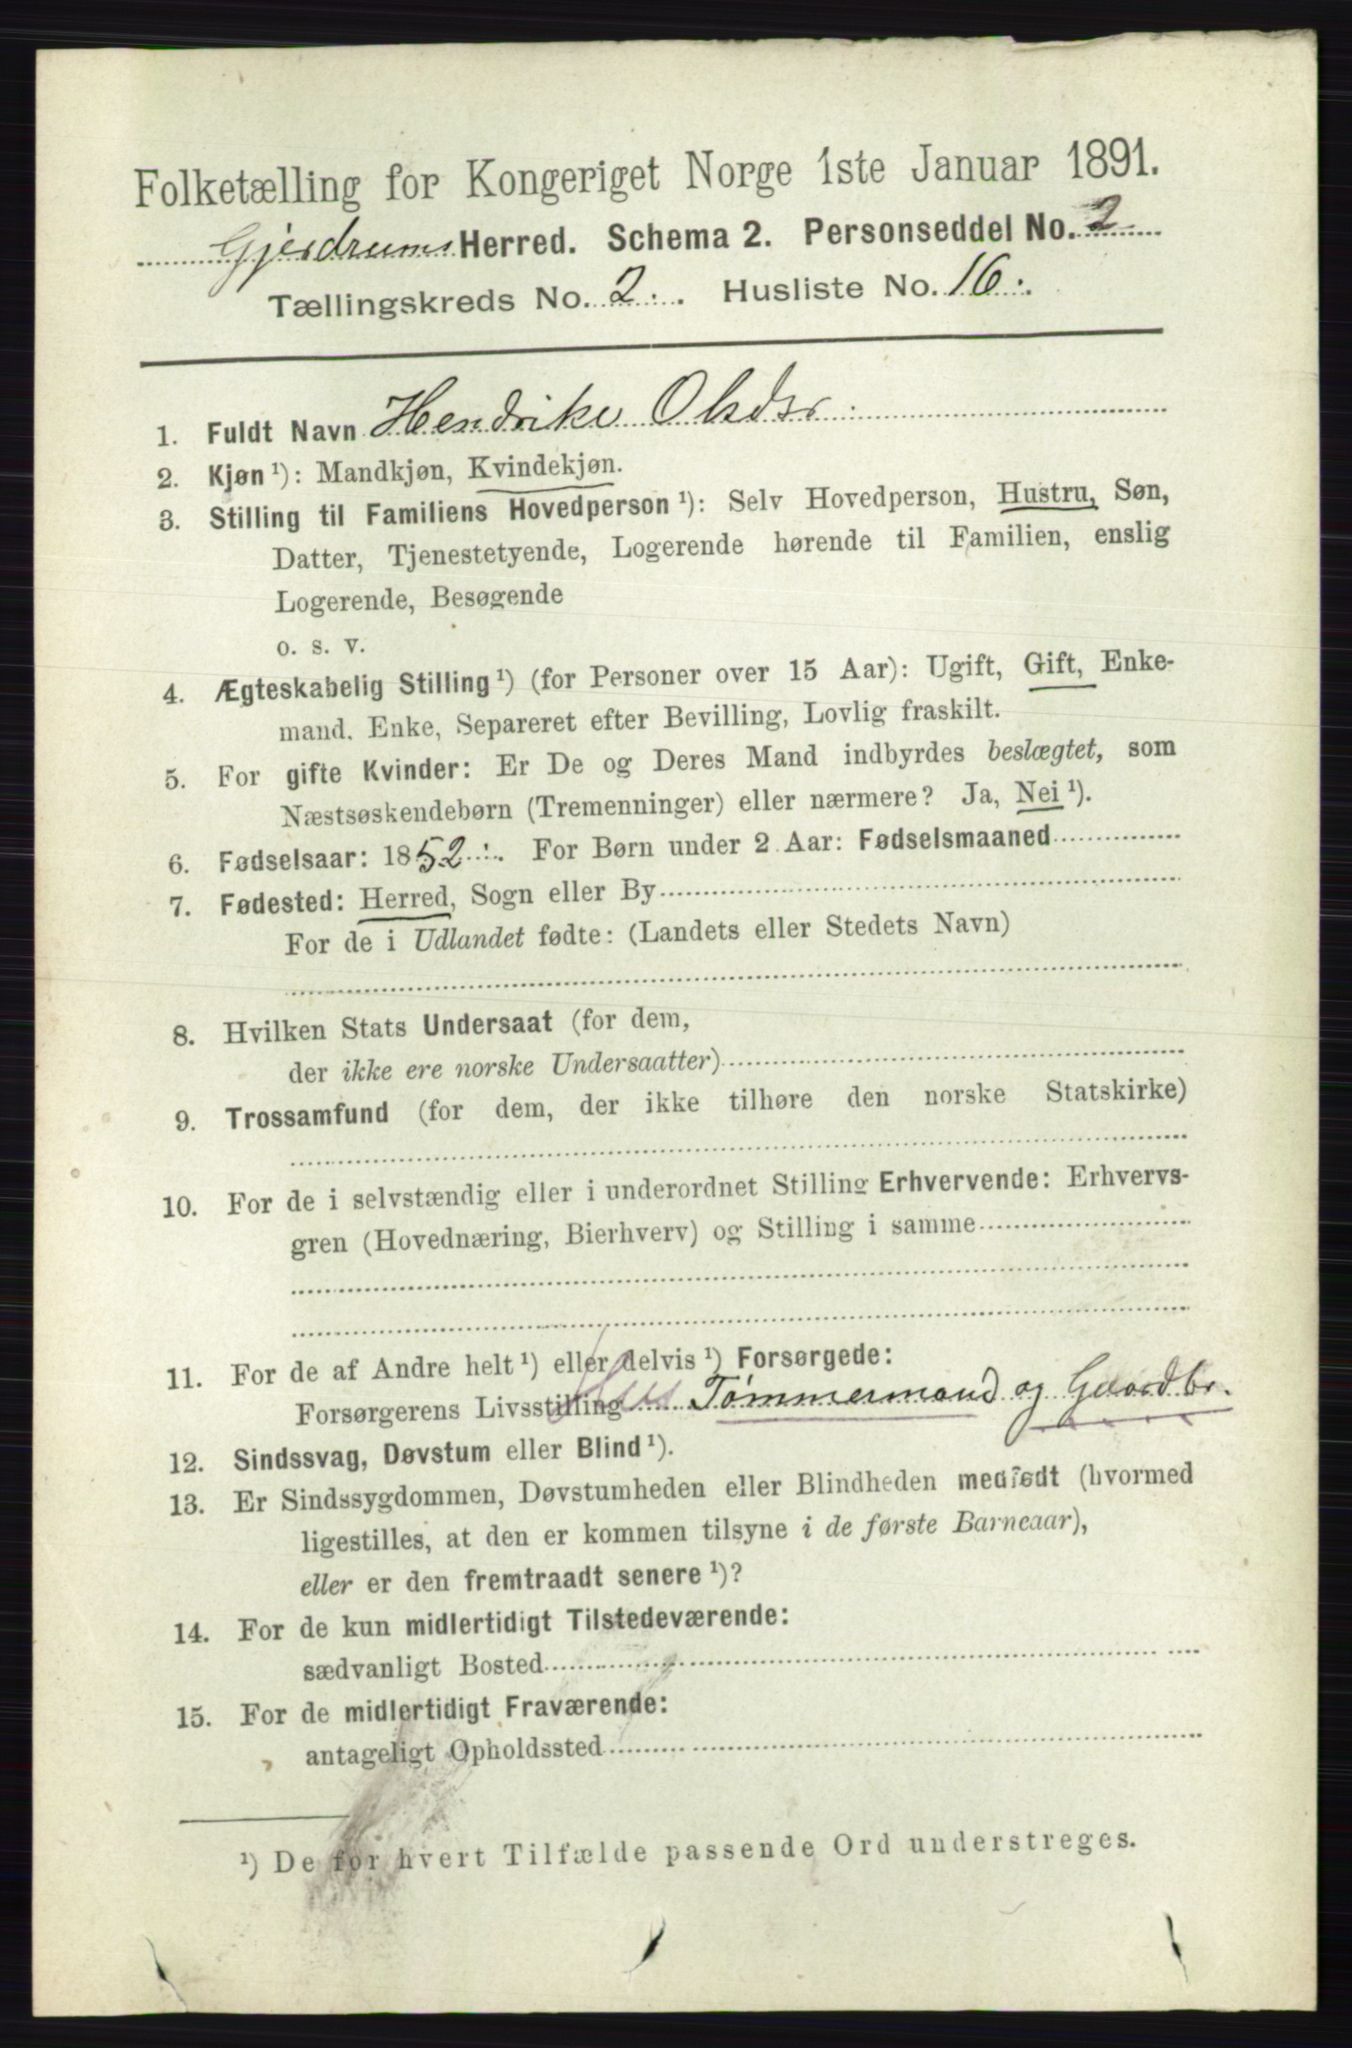 Folketælling for Kongeriget Norge 1ste Januar 1891.
Gjerdrums Herred. Schema 2. Personseddel No. 2
Tællingskreds No. 2. Husliste No. 16.
1. Fuldt Navn Hendrike Olsdr
2. Kjøn ¹): Mandkjøn, Kvindekjøn.
3. Stilling til Familiens Hovedperson ¹): Selv Hovedperson, Hustru, Søn,
Datter, Tjenestetyende, Logerende hørende til Familien, enslig
Logerende, Besøgende
o. s. v.
4. Ægteskabelig Stilling ¹) (for Personer over 15 Aar): Ugift, Gift, Enke-
mand, Enke, Separeret efter Bevilling, Lovlig fraskilt.
5. For gifte Kvinder: Er De og Deres Mand indbyrdes beslægtet, som
Næstsøskendebørn (Tremenninger) eller nærmere? Ja, Nei ¹).
6. Fødselsaar: 1852. For Børn under 2 Aar: Fødselsmaaned
7. Fødested: Herred, Sogn eller By
For de i Udlandet fødte: (Landets eller Stedets Navn)
8. Hvilken Stats Undersaat (for dem,
der ikke ere norske Undersaatter)
9. Trossamfund (for dem, der ikke tilhøre den norske Statskirke)
10. For de i selvstændig eller i underordnet Stilling Erhvervende: Erhvervs-
gren (Hovednæring, Bierhverv) og Stilling i samme
11. For de af Andre helt ¹) eller delvis ¹) Forsørgede:
Forsørgerens Livsstilling Tømmermand og Gaardbr.
12. Sindssvag, Døvstum eller Blind ¹).
13. Er Sindssygdommen, Døvstumheden eller Blindheden medfødt (hvormed
ligestilles, at den er kommen tilsyne i de første Barneaar),
eller er den fremtraadt senere ¹)?
14. For de kun midlertidigt Tilstedeværende:
sædvanligt Bosted
15. For de midlertidigt Fraværende:
antageligt Opholdssted
¹) De for hvert Tilfælde passende Ord understreges.